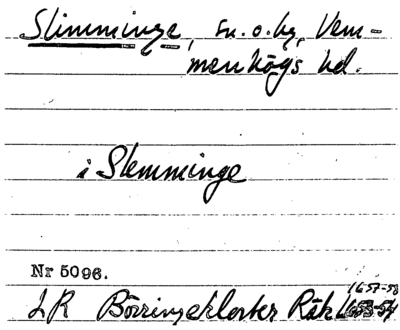 Slimminge, sn. o. by, Vem-
menhögs hd.
i Slemminge
Nr 5096.
LR Börringekloster Räk 1657-58